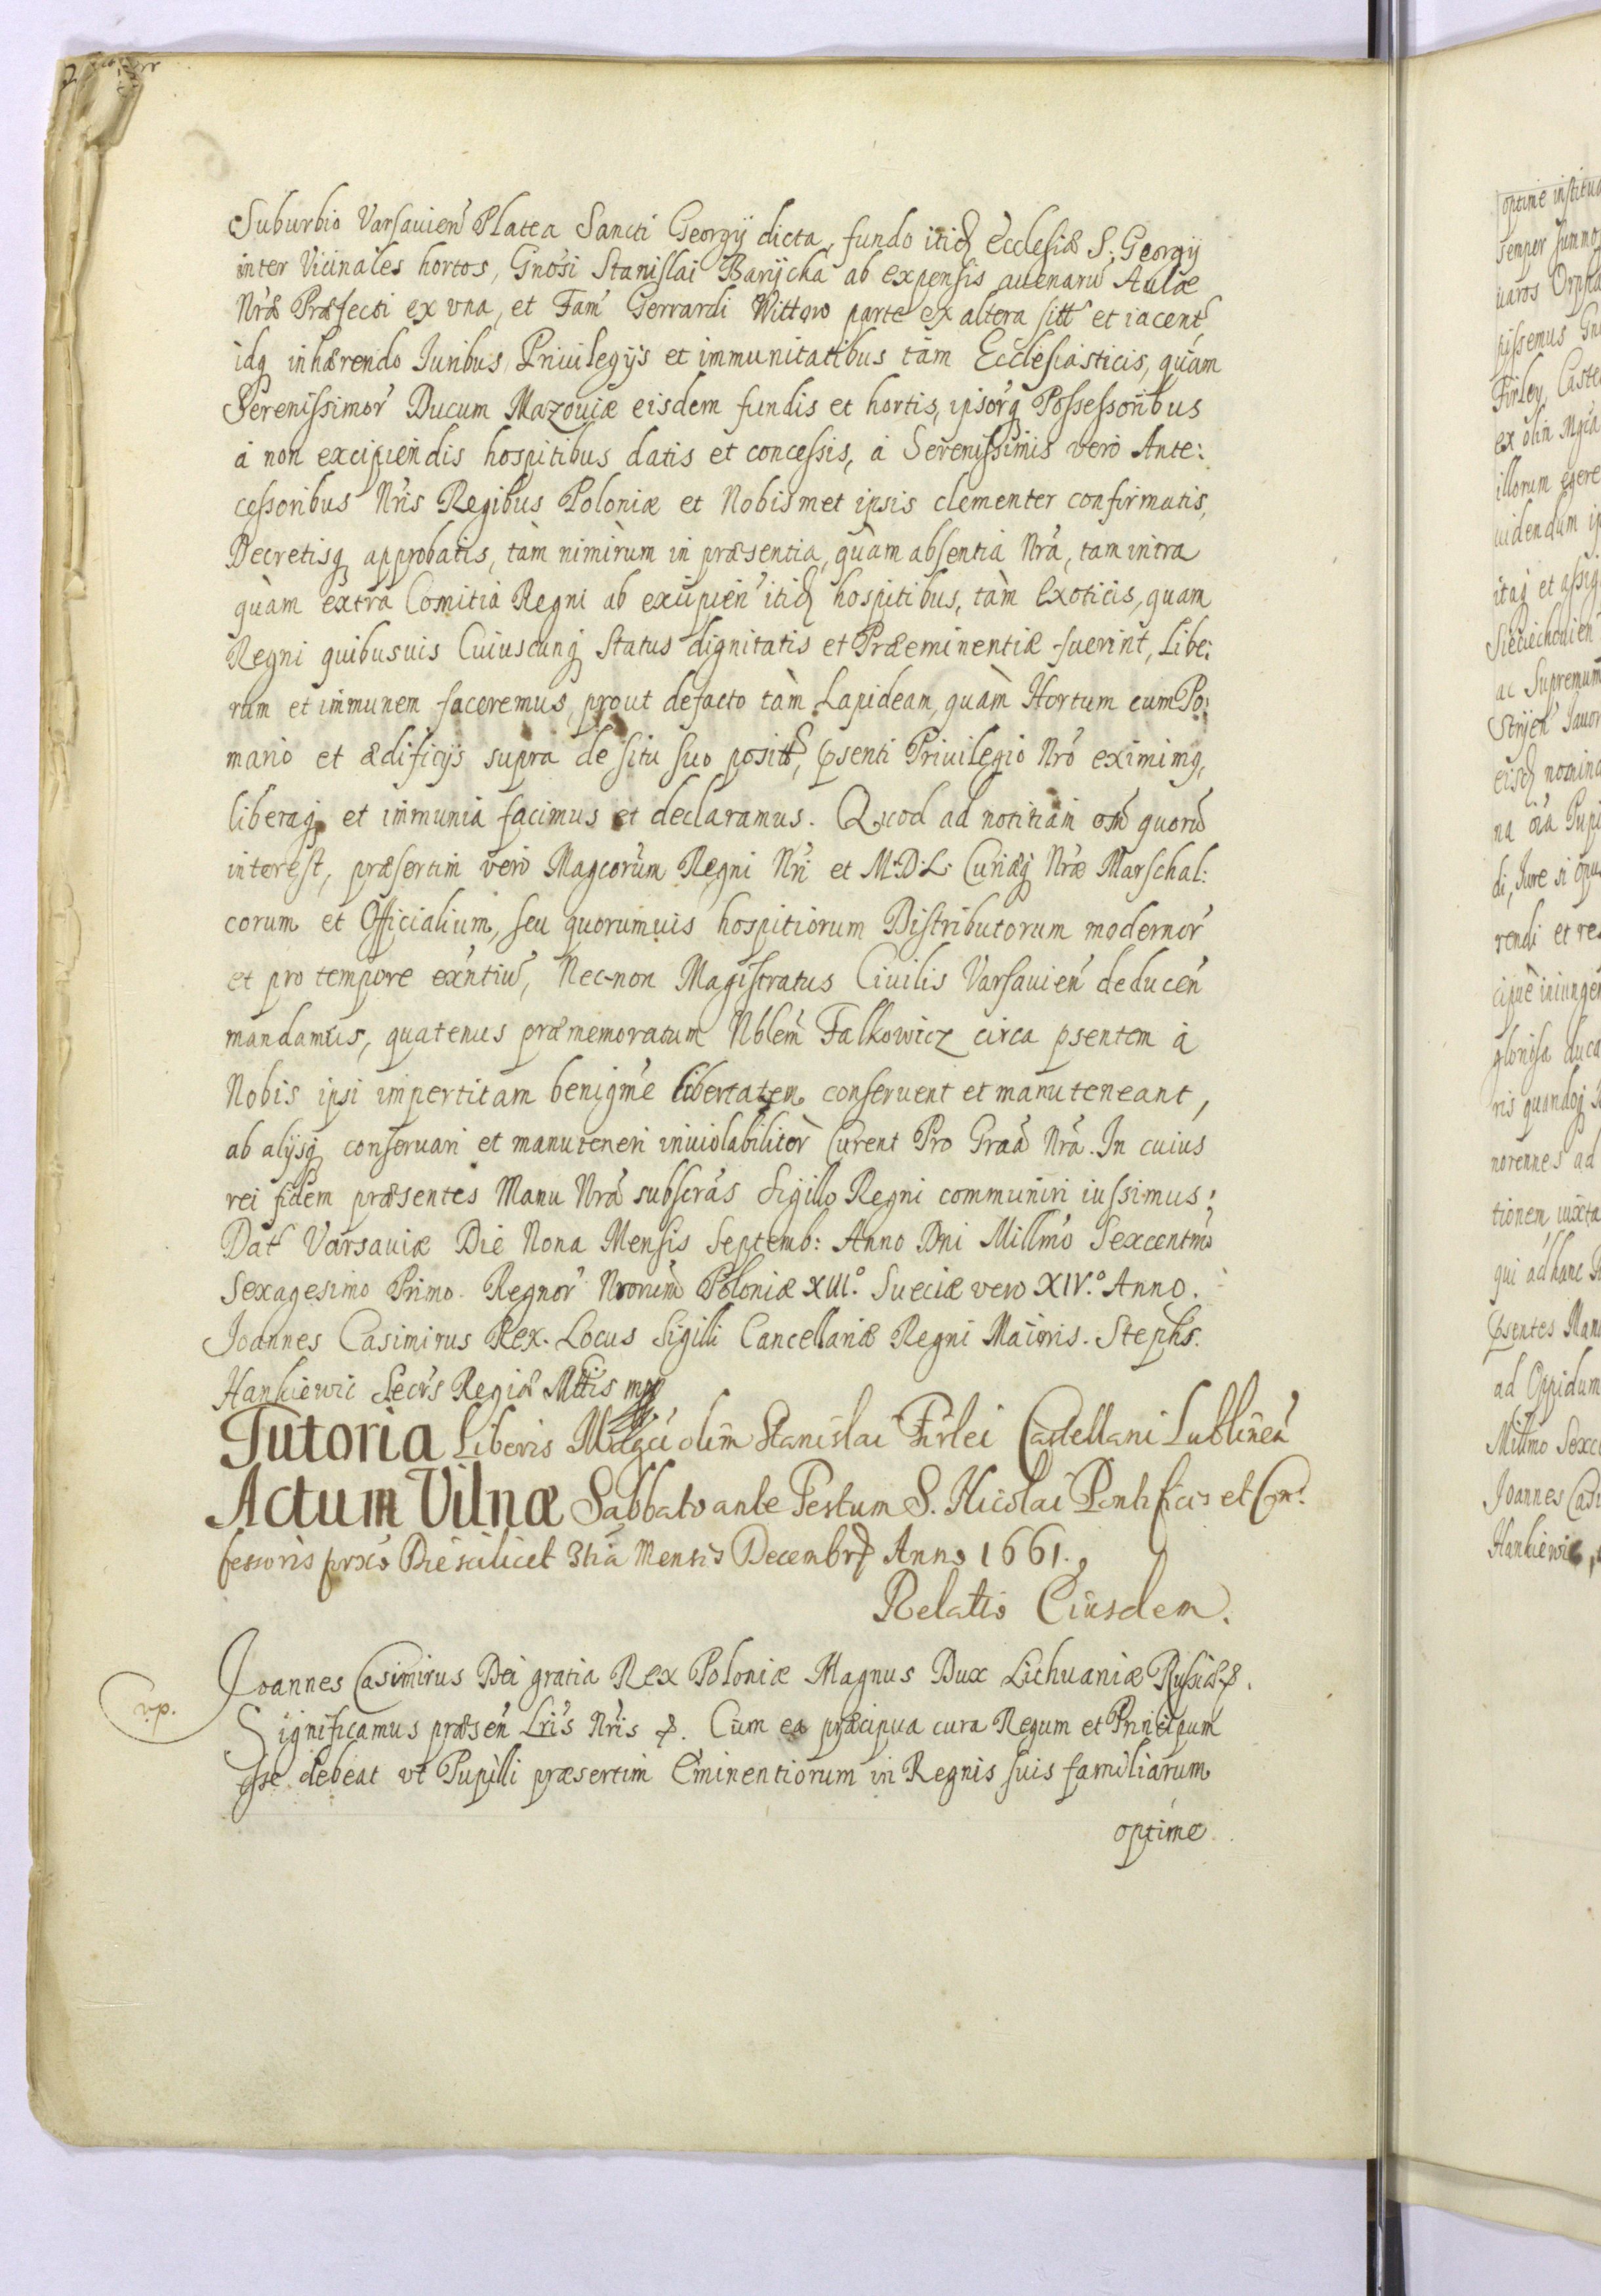 Suburbio Varsavien Platea Sancti Georgÿ dicta, fundo itid Ecclesiæ S. Georgÿ
inter Vicinales hortos, Gnosi Stanislai Barÿcka ab expensis avenaru Aulæ
Nræ Præfecti ex vna, et Fam Gerrardi Wittow parte ex altera sitt et iacent
idq inhærendo Iuribus, Priuilegÿs et immunitatibus tàm Ecclesiasticis, quàm
Serenissimor Ducum Mazouiæ eisdem fundis et hortis, ipsorq Possessoribus
à non excipiendis hospitibus datis et concessis, à Serenissimis verò Ante:
cessoribus Nris Regibus Poloniæ et Nobismet ipsis clementer confirmatis,
Decretisq approbatis, tàm nimirum in præsentia, quàm absentia Nrâ, tam intra
quàm extra Comitia Regni ab excipien itid hospitibus, tàm Exoticis, quam
Regni quibusuis Cuiuscunq Status dignitatis et Præeminentiæ fuerint, Libe:
rum et immunem faceremus, prout defacto tàm Lapideam, quàm Hortum cum Po:
mario et ædificÿs supra de situ suo positt, psenti Priuilegio Nro eximimq,
liberaq et immunia facimus et declaramus. Quod ad notitiam om quorũ
interest, præsertim verò Magcorum Regni Nri et M.D.L. Curiæq Nræ Marschal:
corum et Officialium, seu quorumuis hospitiorum Distributorum modernor
et pro tempore exntiũ, Nec-non Magistratus Ciuilis Varsauien deducen
mandamus, quatenus præmemoratum Nblem Falkowicz circa psentem à
Nobis ipsi impertitam benigme libertatem conseruent et manuteneant,
ab alÿsq conseruari et manuteneri inuiolabiliter Curent Pro Graâ Nrâ. In cuius
rei fidem præsentes Manu Nrâ subscras Sigillo Regni communiri iussimus;
Dat Varsauiæ Die Nona Mensis Septemb: Anno Dni Millmo Sexcentmo
Sexagesimo Primo. Regnor Nrorum Poloniæ XIII.º Sueciæ vero XIV.º Anno.
Joannes Casimirus Rex. Locus Sigilli Cancellariæ Regni Maioris. Stephs.
Hankiewic Secrs Regiæ Mttis mp
Tutoria Liberis Magci olim Stanislai Firlei Castellani Lublinen
Actum Vilnæ Sabbato ante Festum S. Nicolai Pontificis et Con:
fessoris prxo Die scilicet 3tia Mensis Decembr Anno 1661.
Relatio Eiusdem.
Joannes Casimirus Dei gratia Rex Poloniæ Magnus Dux Lithuaniæ Russiæ &.
Significamus præsen Lris Nris &. Cum ea præcipua cura Regum et Principum
esse debeat vt Pupilli præsertim Eminentiorum in Regnis suis familiarum
optime